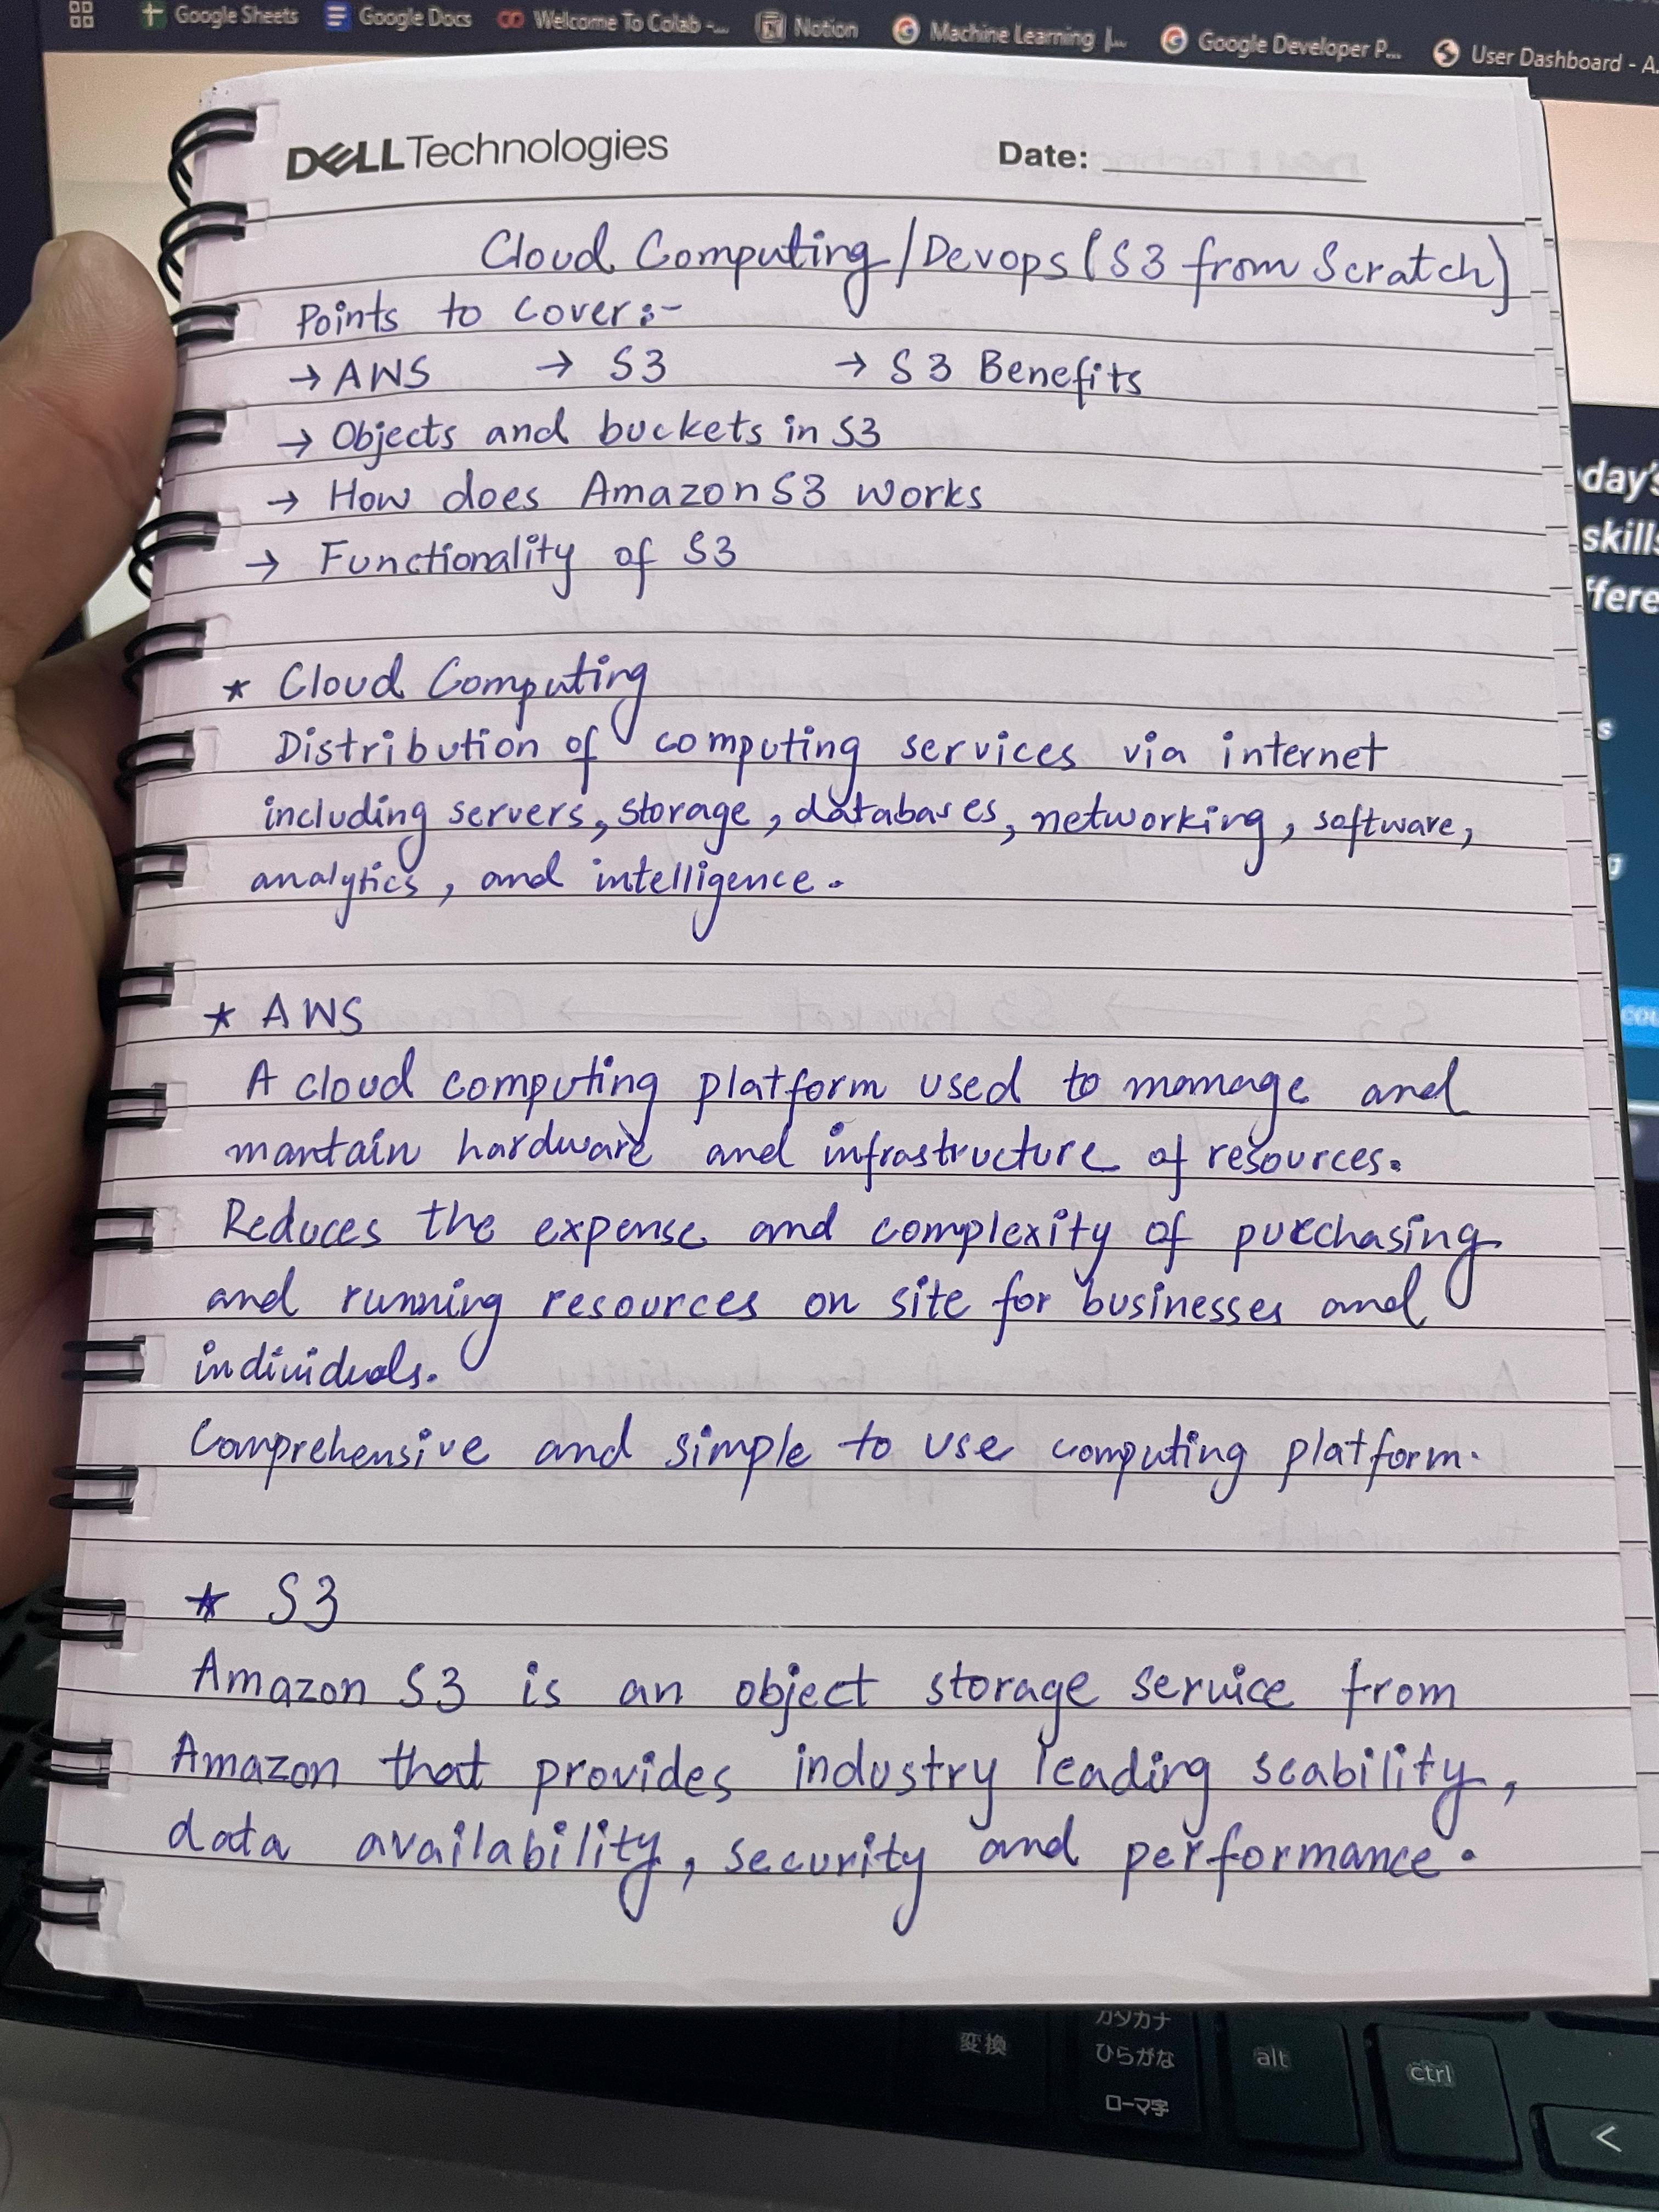 Google Sheets Google Docs Welcome To Colab -... Notion Machine Learning |... Google Developer P... User Dashboard - A.
DELL Technologies Date:
Cloud Computing/Devops (S3 from Scratch)
Points to Cover:-
→ AWS → S3 → S3 Benefits
→ Objects and buckets in S3
→ How does Amazon S3 works
→ Functionality of S3
* Cloud Computing
Distribution of computing services via internet
including servers, storage, databases, networking, software,
analytics, and intelligence.
* AWS
A cloud computing platform used to manage and
mantain hardware and infrastructure of resources.
Reduces the expense and complexity of purchasing
and running resources on site for businesses and
individuals.
Comprehensive and simple to use computing platform.
* S3
Amazon S3 is an object storage service from
Amazon that provides industry leading scability,
data availability, security and performance.
day's
skills
ffere
s
g
cou
変換
カタカナ
ひらがな
ローマ字
alt
ctrl
<